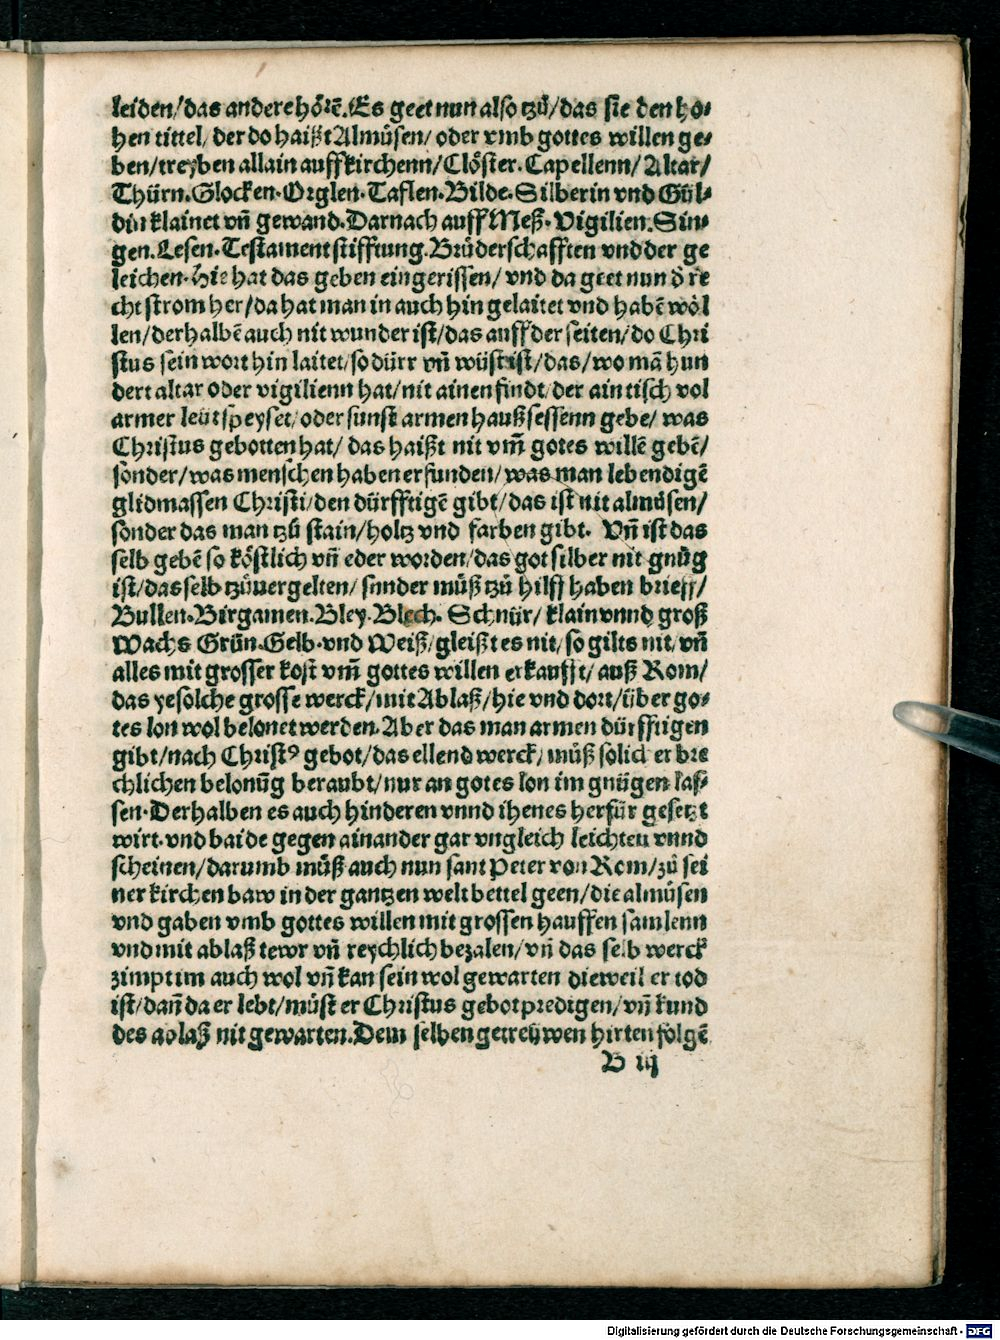 leiden/das andere hörē. Es geet nun also tzů/das sie den ho⸗
hen tittel/ der do haißt Almůsen/ oder vmb gottes willen ge⸗
ben/treyben allain auff kirchenn/Clöster. Capellenn/ Altar/
Thürn. Glocken. Orglen. Taflen. Bilde. Silberin vnd Gül⸗
din klainet vñ gewand. Darnach auff Meß. Vigilien. Sin⸗
gen. Lesen. Testament stifftung. Brůderschafften vnd der ge
leichen. Hie hat das geben eingerissen/ vnd da geet nun d̕ re
cht strom her/da hat man in auch hin gelaitet vnd habē wöl
len/derhalbē auch nit wunder ist/das auff der seiten/do Chri
stus sein wort hin laitet/so dürr vñ wüst ist/das/wo mā hun
dert altar oder vigilienn hat/nit ainen findt/der ain tisch vol
armer leüt speyset/oder sunst armen haußsessenn gebe/ was
Christus gebotten hat/ das haißt nit vm̄ gotes willē gebē/
sonder/was menschen haben erfunden/ was man lebendigē
glidmassen Christi/den dürfftigē gibt/das ist nit almůsen/
sonder das man tzů stain/holtz vnd farben gibt. Vñ ist das
selb gebē so köstlich vñ eder worden/das got silber nit gnůg
ist/das selb tzůuergelten/ sunder můß tzů hilff haben brieff/
Bullen. Birgamen. Bley. Blech. Schnür/ klain vnnd groß
Wachs Grün. Gelb. vnd Weiß/gleißt es nit/so gilts nit/vñ
alles mit grosser kost vm̄ gottes willen erkaufft/ auß Rom/
das ye solche grosse werck/mit Ablaß/hie vnd dort/über go⸗
tes lon wol belonet werden. Aber das man armen dürfftigen
gibt/nach Christꝰ gebot/das ellend werck/ můß solich er bre
chlichen belonūg beraubt/nur an gotes lon im gnügen las⸗
sen. Derhalben es auch hinderen vnnd ihenes herfür gesetzt
wirt. vnd baide gegen ainander gar vngleich leichten vnnd
scheinen/darumb můß auch nun sant Peter von Rom/zů sei
ner kirchen baw in der gantzen welt bettel geen/die almůsen
vnd gaben vmb gottes willen mit grossen hauffen samlenn
vnd mit ablaß tewr vñ reychlich bezalen/vñ das selb werck
zimpt im auch wol vñ kan sein wol gewarten dieweil er tod
ist/dañ da er lebt/můst er Christus gebot predigen/vñ kund
des aplaß nit gewarten. Dem selben getreüwen hirten folgē
B iij
Digitalisierung gefördert durch die Deutsche Forschungsgemeinschaft - DFG